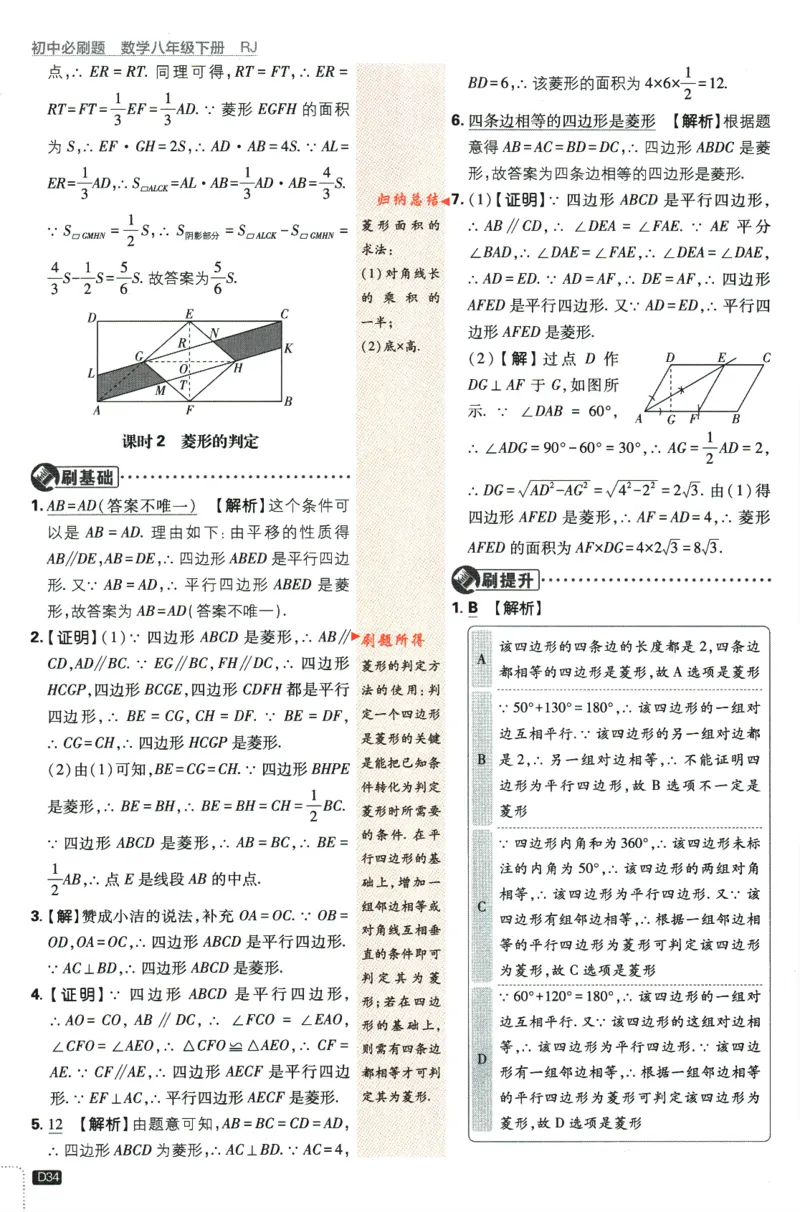 初中必刷题 数学八年级下册 RJ
点,∴ ER=RT. 同理可得,RT=FT,∴ ER=
RT=FT=1/3EF=1/3AD. ∵ 菱形 EGFH 的面积
为 S,∴ EF·GH=2S,∴ AD·AB=4S. ∵ AL=
ER=1/3AD,∴ S▱ALCK=AL·AB=1/3AD·AB=4/3S.
∵ S▱GMHN=1/2S,∴ S阴影部分=S▱ALCK-S▱GMHN=
4/3S-1/2S=5/6S. 故答案为5/6S.
D E C
R N
G K
L O H
M T
A F B
课时2 菱形的判定
刷基础
1. AB=AD(答案不唯一) 【解析】这个条件可
以是 AB=AD. 理由如下:由平移的性质得
AB∥DE,AB=DE,∴ 四边形 ABED 是平行四边
形. 又∵ AB=AD,∴ 平行四边形 ABED 是菱
形,故答案为 AB=AD(答案不唯一).
2.【证明】(1)∵ 四边形 ABCD 是菱形,∴ AB∥
CD,AD∥BC. ∵ EG∥BC,FH∥DC,∴ 四边形
HCGP,四边形 BCGE,四边形 CDFH 都是平行
四边形,∴ BE=CG,CH=DF. ∵ BE=DF,
∴ CG=CH,∴ 四边形 HCGP 是菱形.
(2)由(1)可知,BE=CG=CH. ∵ 四边形 BHPE
是菱形,∴ BE=BH,∴ BE=BH=CH=1/2BC.
∵ 四边形 ABCD 是菱形,∴ AB=BC,∴ BE=
1/2AB,∴ 点 E 是线段 AB 的中点.
3.【解】赞成小洁的说法,补充 OA=OC. ∵ OB=
OD,OA=OC,∴ 四边形 ABCD 是平行四边形.
∵ AC⊥BD,∴ 四边形 ABCD 是菱形.
4.【证明】∵ 四边形 ABCD 是平行四边形,
∴ AO=CO,AB∥DC,∴ ∠FCO=∠EAO,
∠CFO=∠AEO,∴ △CFO≌△AEO,∴ CF=
AE. ∵ CF∥AE,∴ 四边形 AECF 是平行四边
形. ∵ EF⊥AC,∴ 平行四边形 AECF 是菱形.
5. 12 【解析】由题意可知,AB=BC=CD=AD,
∴ 四边形 ABCD 为菱形,∴ AC⊥BD. ∵ AC=4,
归纳总结
菱形面积的
求法:
(1)对角线长
的乘积的
一半;
(2)底×高.
刷题所得
菱形的判定方
法的使用:判
定一个四边形
是菱形的关键
是能把已知条
件转化为判定
菱形时所需要
的条件. 在平
行四边形的基
础上,增加一
组邻边相等或
对角线互相垂
直的条件即可
判定其为菱
形;若在四边
形的基础上,
则需有四条边
都相等才可判
定其为菱形.
BD=6,∴ 该菱形的面积为 4×6×1/2=12.
6. 四条边相等的四边形是菱形 【解析】根据题
意得 AB=AC=BD=DC,∴ 四边形 ABDC 是菱
形,故答案为四条边相等的四边形是菱形.
7.(1)【证明】∵ 四边形 ABCD 是平行四边形,
∴ AB∥CD,∴ ∠DEA=∠FAE. ∵ AE 平分
∠BAD,∴ ∠DAE=∠FAE,∴ ∠DEA=∠DAE,
∴ AD=ED. ∵ AD=AF,∴ DE=AF,∴ 四边形
AFED 是平行四边形. 又∵ AD=ED,∴ 平行四
边形 AFED 是菱形.
(2)【解】过点 D 作
DG⊥AF 于 G,如图所
示. ∵ ∠DAB=60°,
D E C
A G F B
∴ ∠ADG=90°-60°=30°,∴ AG=1/2AD=2,
∴ DG=√(AD²-AG²)=√(4²-2²)=2√3. 由(1)得
四边形 AFED 是菱形,∴ AF=AD=4,∴ 菱形
AFED 的面积为 AF×DG=4×2√3=8√3.
刷提升
1. B 【解析】
A
该四边形的四条边的长度都是2,四条边
都相等的四边形是菱形,故 A 选项是菱形
B
∵ 50°+130°=180°,∴ 该四边形的一组对
边互相平行. ∵ 该四边形的另一组对边都
是2,∴ 另一组对边相等,∴ 不能证明四
边形为平行四边形,故 B 选项不一定是
菱形
C
∵ 四边形内角和为360°,∴ 该四边形未标
注的内角为 50°,∴ 该四边形的两组对角
相等,∴ 该四边形为平行四边形. 又∵ 该
四边形有组邻边相等,∴ 根据一组邻边相
等的平行四边形为菱形可判定该四边形
为菱形,故 C 选项是菱形
D
∵ 60°+120°=180°,∴ 该四边形的一组对
边互相平行. 又∵ 该四边形的这组对边相
等,∴ 该四边形为平行四边形. ∵ 该四边
形有一组邻边相等,∴ 根据一组邻边相等
的平行四边形为菱形可判定该四边形为
菱形,故 D 选项是菱形
D34